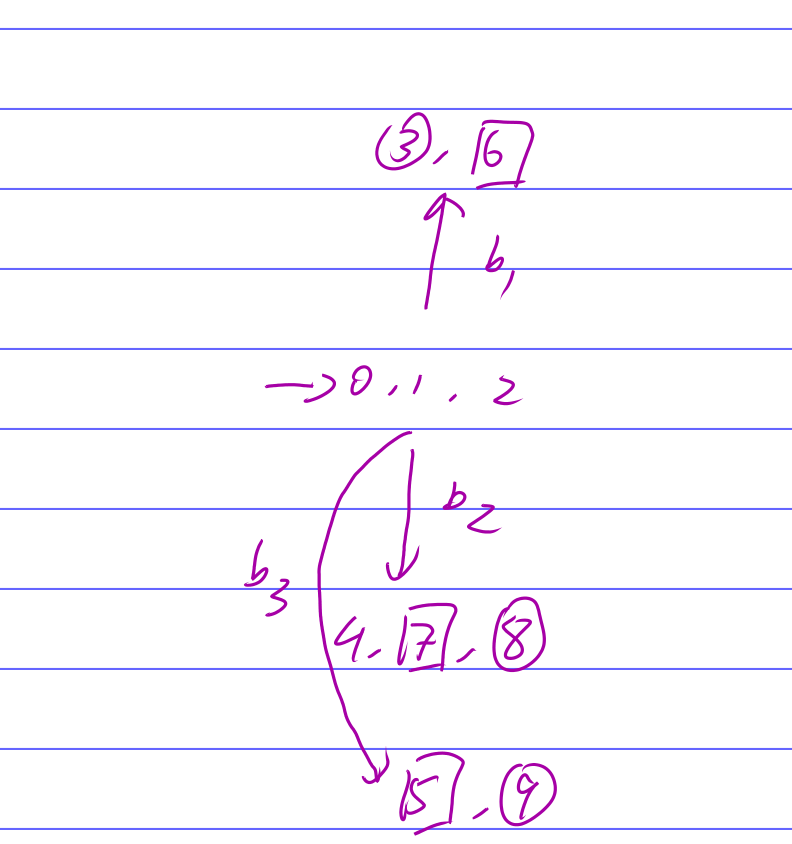 3, 6
b1
→ 0, 1, 2
b2
b3
4, 7, 8
5, 9